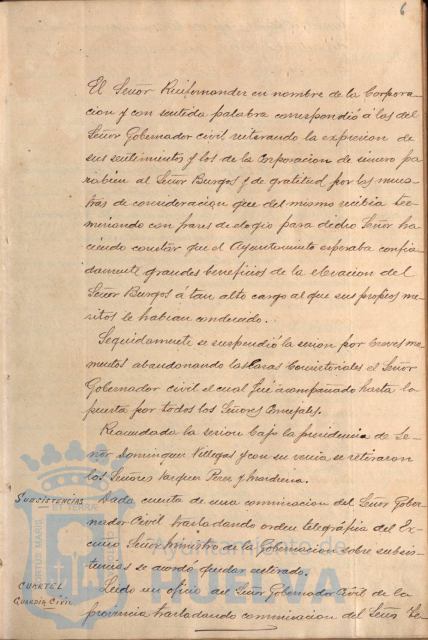 6
El Señor Ruifernandez en nombre de la Corpora-
cion y con sentida palabra correspondió á las del
Señor Gobernador civil reiterando la expresion de
sus sentimientos y los de la Corporacion de sincero pa
rabien al Señor Burgos y de gratitud por las mues-
tras de consideracion que del mismo recibia ter-
minando con frases de elogio para dicho Señor ha
ciendo constar que el Ayuntamiento esperaba confia
damente grandes beneficios de la elevacion del
Señor Burgos á tan alto cargo al que sus propios me
ritos le habian conducido.
Seguidamente se suspendió la sesion por breves mo
mentos abandonando las Casas Consistoriales el Señor
Gobernador civil el cual fué acompañado hasta la
puerta por todos los Señores Concejales.
Reanudada la sesion bajo la presidencia de Se-
ñor Dominguez Villegas y con su venia se retiraron
los Señores Vazquez Perez y Mardena.
SUBSISTENCIAS Dada cuenta de una comunicacion del Señor Gober-
nador Civil trasladando orden telegráfica del Ex-
cmo Señor Ministro de la Gobernacion sobre subsis-
tencias se acordó quedar enterado.
CUARTEL Leido un oficio del Señor Gobernador Civil de la
Guardia Civil provincia trasladando comunicacion del Señor
Ayuntamiento de
HUELVA